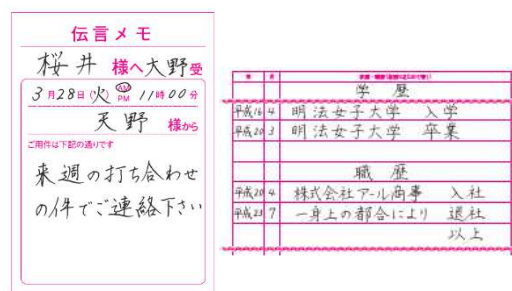 伝言メモ
桜井 様へ 大野 受
3月28日(火) AM PM 11時00分
天野 様から
ご用件は下記の通りです
来週の打ち合わせ
の件でご連絡下さい
年 月
学歴
平成16 4 明法女子大学 入学
平成20 3 明法女子大学 卒業
職歴
平成20 4 株式会社アール商事 入社
平成23 7 一身上の都合により 退社
以上